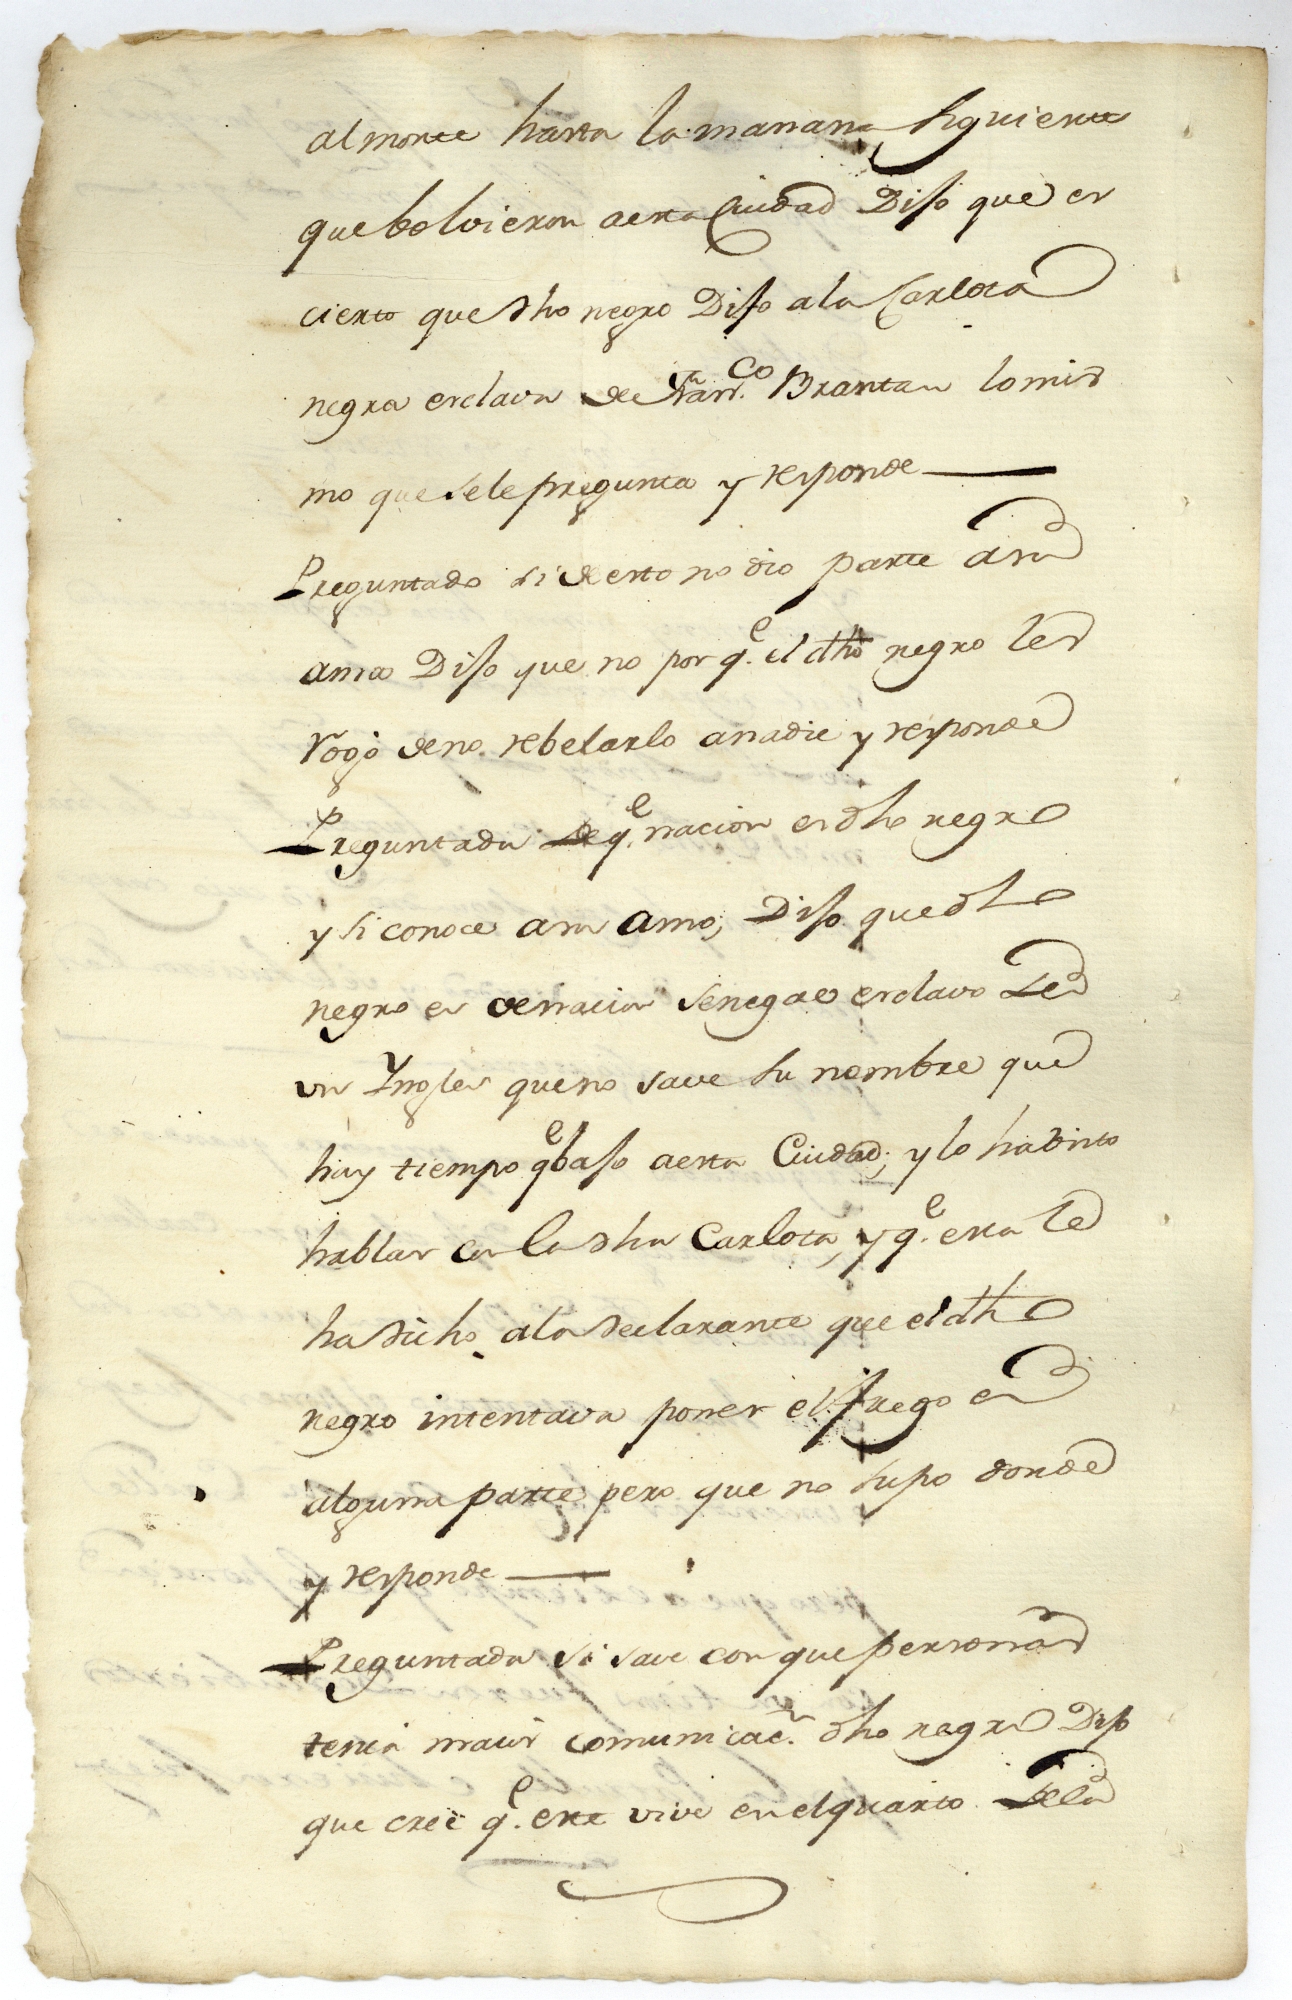 al monte hasta la mañana siguiente
que bolvieron a esta Ciudad Dijo que es
cierto que dho negro Dijo a la Carlota
negra esclava de Fran.co Brantan lo mis
mo que se le pregunta y responde
Preguntado si de esto no dio parte a su
ama Dijo que no por q.e el dho negro le
rogó de no rebelarlo a nadie y responde
Preguntada de q.e nacion es dho negro
y si conoce a su amo, Dijo que dho
negro es de nacion Senegal esclavo de
un Yngles que no save su nombre que
hay tiempo q.e bajo a esta Ciudad, y lo ha visto
hablar con la dha Carlota, y q.e esta le
ha dicho a la declarante que el dho
negro intentava poner el fuego en
alguna parte pero que no supo donde
y responde
Preguntada si save con que personas
tenia maior comunicac.n dho negro Dijo
que cree q.e este vive en el quarto de la